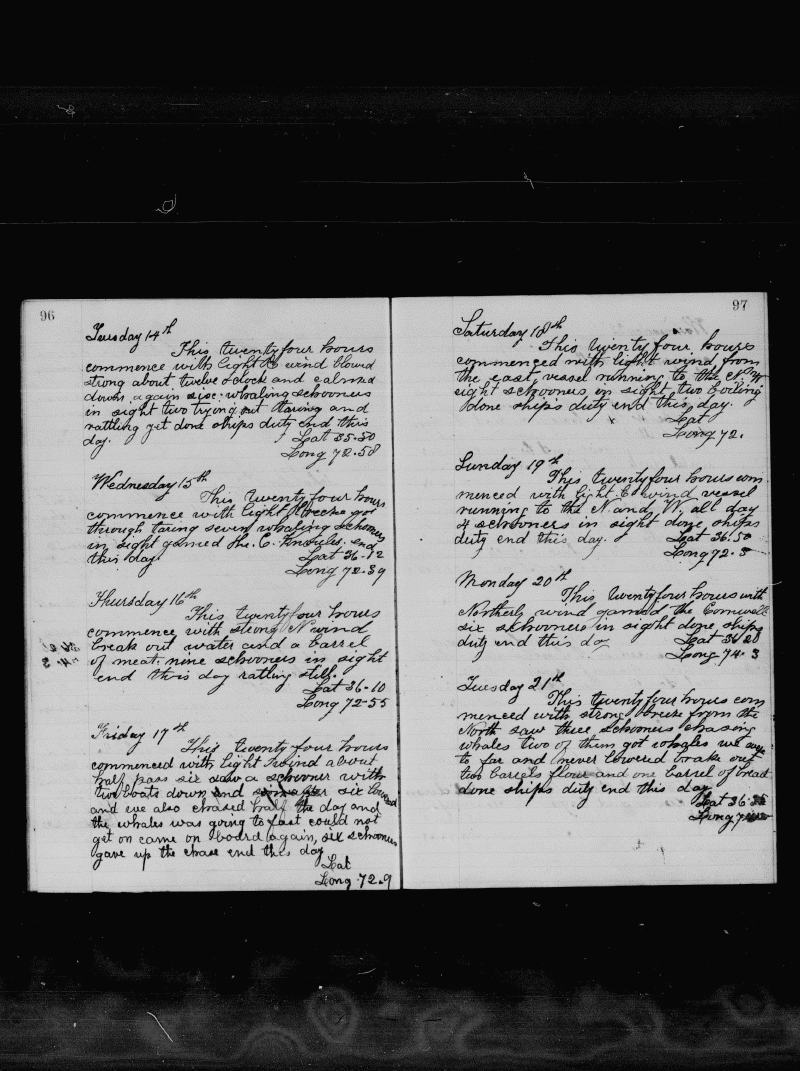 96
Tuesday 14th
This twenty four hours
commence with light E wind blowed
strong about twelve oclock and calmed
down again six whaling schooners
in sight two trying out and
rattling yet done ships duty end this
day. Lat 35-50
Long 72-58
Wednesday 15th
This twenty four hours
commence with light breeze got
through taring seven whaling schooners
in sight gamed the. E. end
this day. Lat 36-12
Long 72-39
Thursday 16th
This twenty four hours
commence with strong N wind
break out water and a barrel
of meat. nine schooners in sight
end this day rattling still.
Lat 36-10
Long 72-55
Friday 17th
This twenty four hours
commenced with light wind about
half pass six saw a schooner with
two boats down and six lowered
and we also chased half the day and
the whales was going to fast could not
get on came on board again, six schooners
gave up the chase end this day
Lat
Long 72-9
97
Saturday 18th
This twenty four hours
commenced with light wind from
the east, vessel running to the N W
eight schooners in sight, two boiling
done ships duty end this day.
Lat
Long 72.
Sunday 19th
This twenty four hours com
menced with light E wind vessel
running to the N and W. all day
4 schooners in sight done ships
duty end this day. Lat 36.50
Long 72.
Monday 20th
This twenty four hours with
Northerly wind gamed the Cornwell
six schooners in sight done ships
duty end this day Lat 36 28
Long 74. 3
Tuesday 21th
This twenty four hours com
menced with strong breeze from the
North saw three schooners chasing
whales two of them got whales we was
to far and never lowered broake out
two barrels flour and one barrel of bread
done ships duty end this day
Lat 36
Long